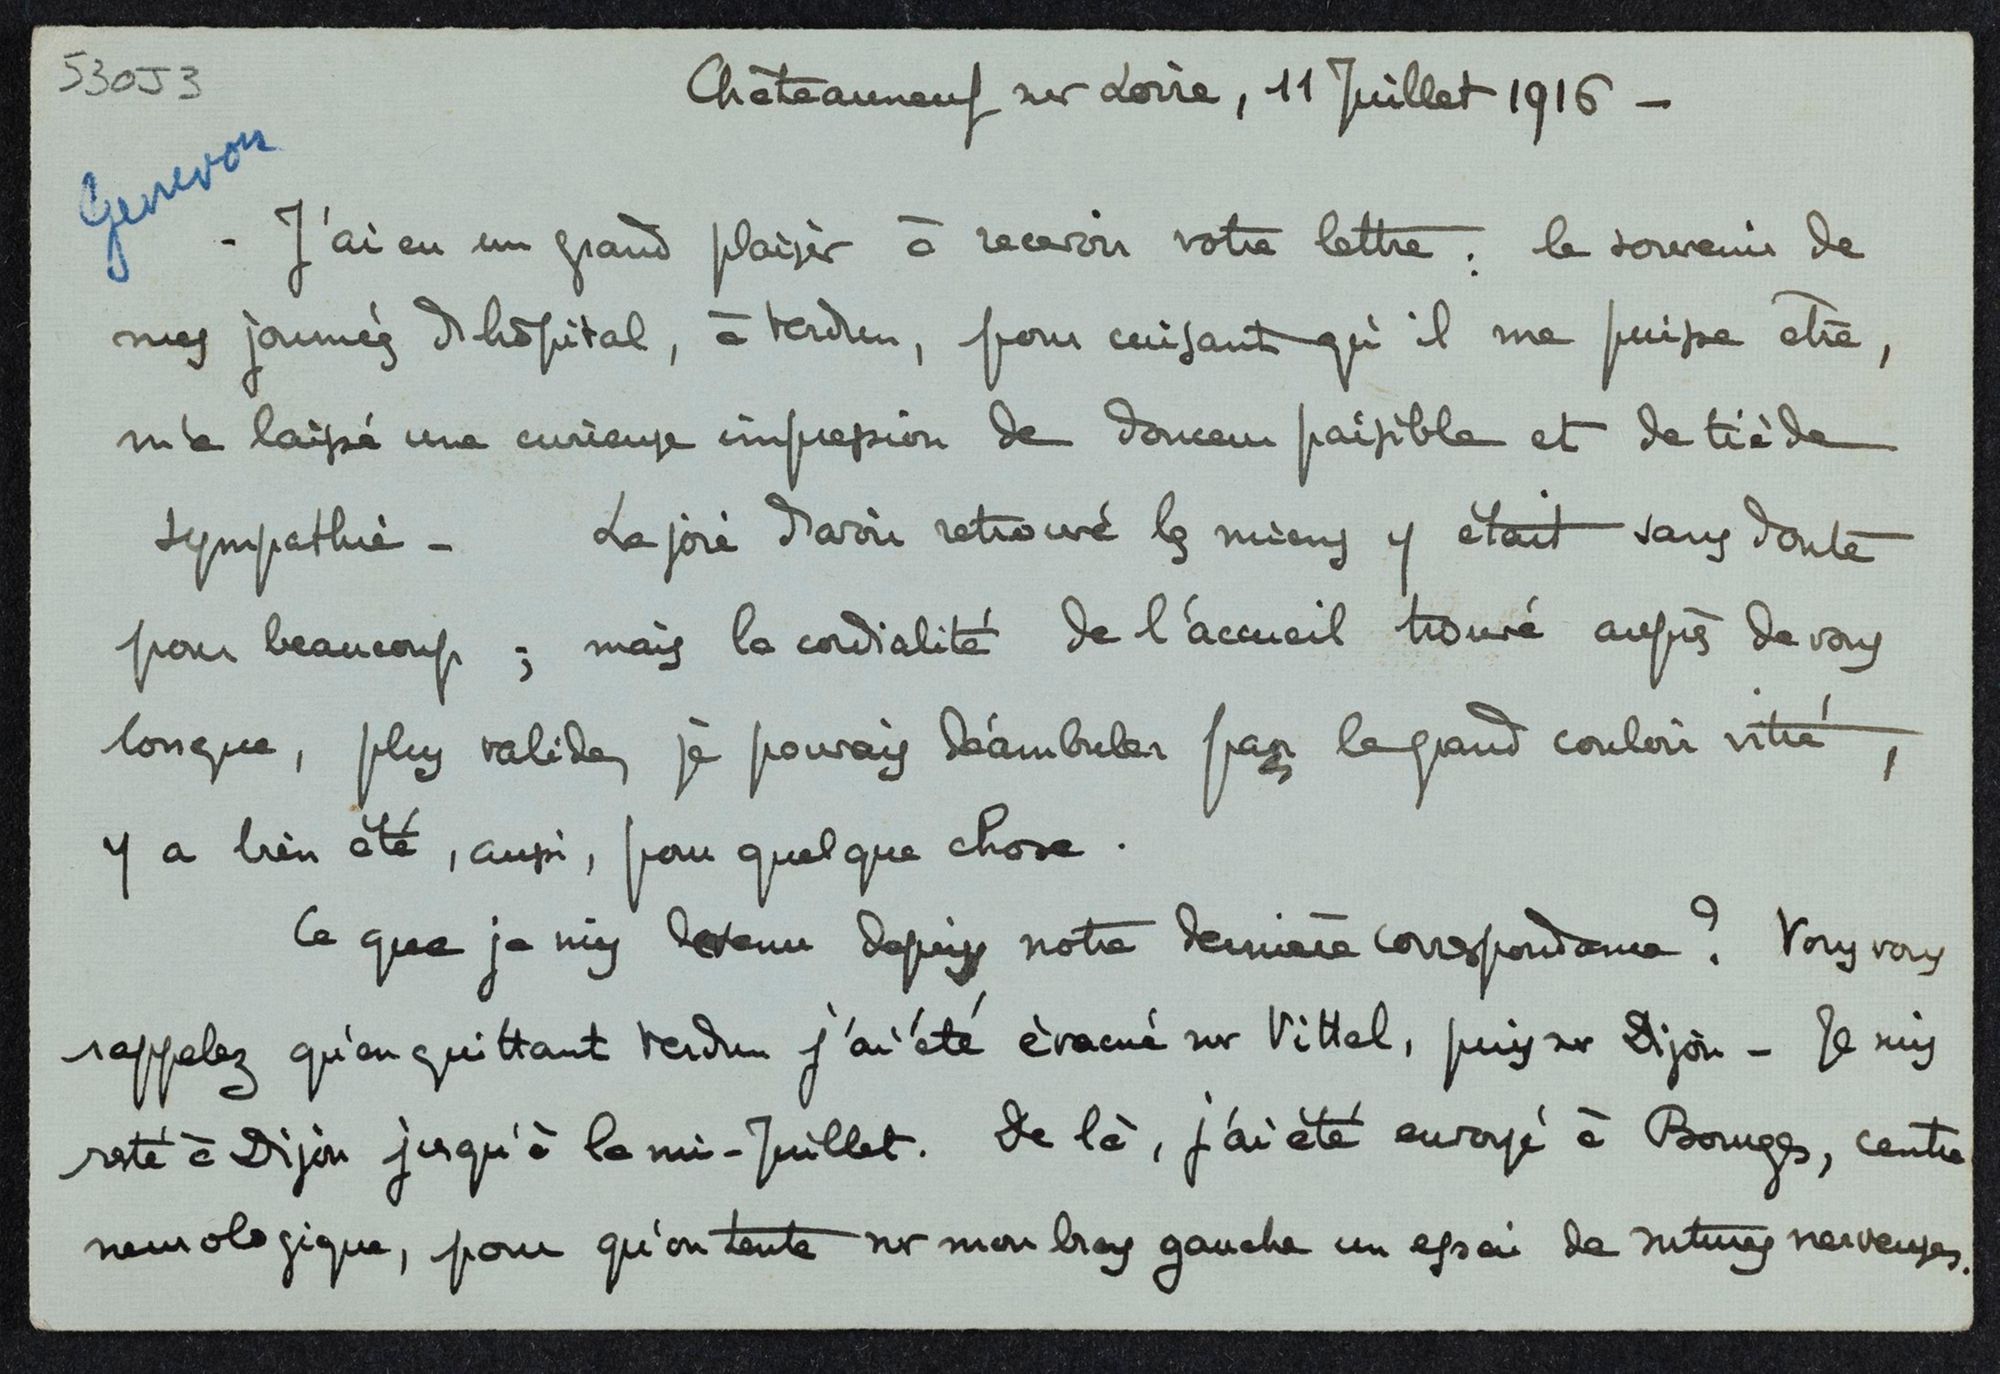 530J3
Châteauneuf sur Loire, 11 Juillet 1916 –
Genevoix
- J'ai eu un grand plaisir à recevoir votre lettre : le souvenir de
mes journées d'hôpital, à Verdun, pour cuisant qu'il me puisse être,
m'a laissé une curieuse impression de douceur paisible et de tiède
sympathie – La joie d'avoir retrouvé les miens y était sans doute
pour beaucoup ; mais la cordialité de l'accueil trouvé auprès de vous
lorsque, plus valide, je pouvais déambuler par le grand couloir vitré,
y a bien été, aussi, pour quelque chose.
Ce que je suis devenu depuis notre dernière correspondance ? Vous vous
rappelez qu'en quittant Verdun j'ai été évacué sur Vittel, puis sur Dijon – Je suis
resté à Dijon jusqu'à la mi-Juillet. De là, j'ai été envoyé à Bourges, centre
neurologique, pour qu'on tente sur mon bras gauche un essai de sutures nerveuses.